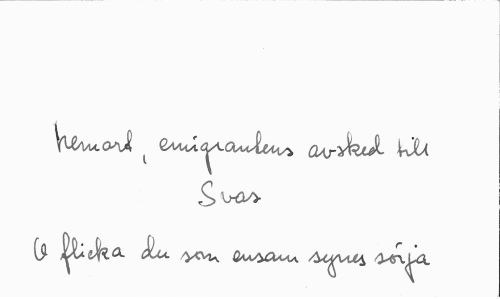 Hemort, emigrantens avsked till
Svar
O flicka du som ensam synes sörja